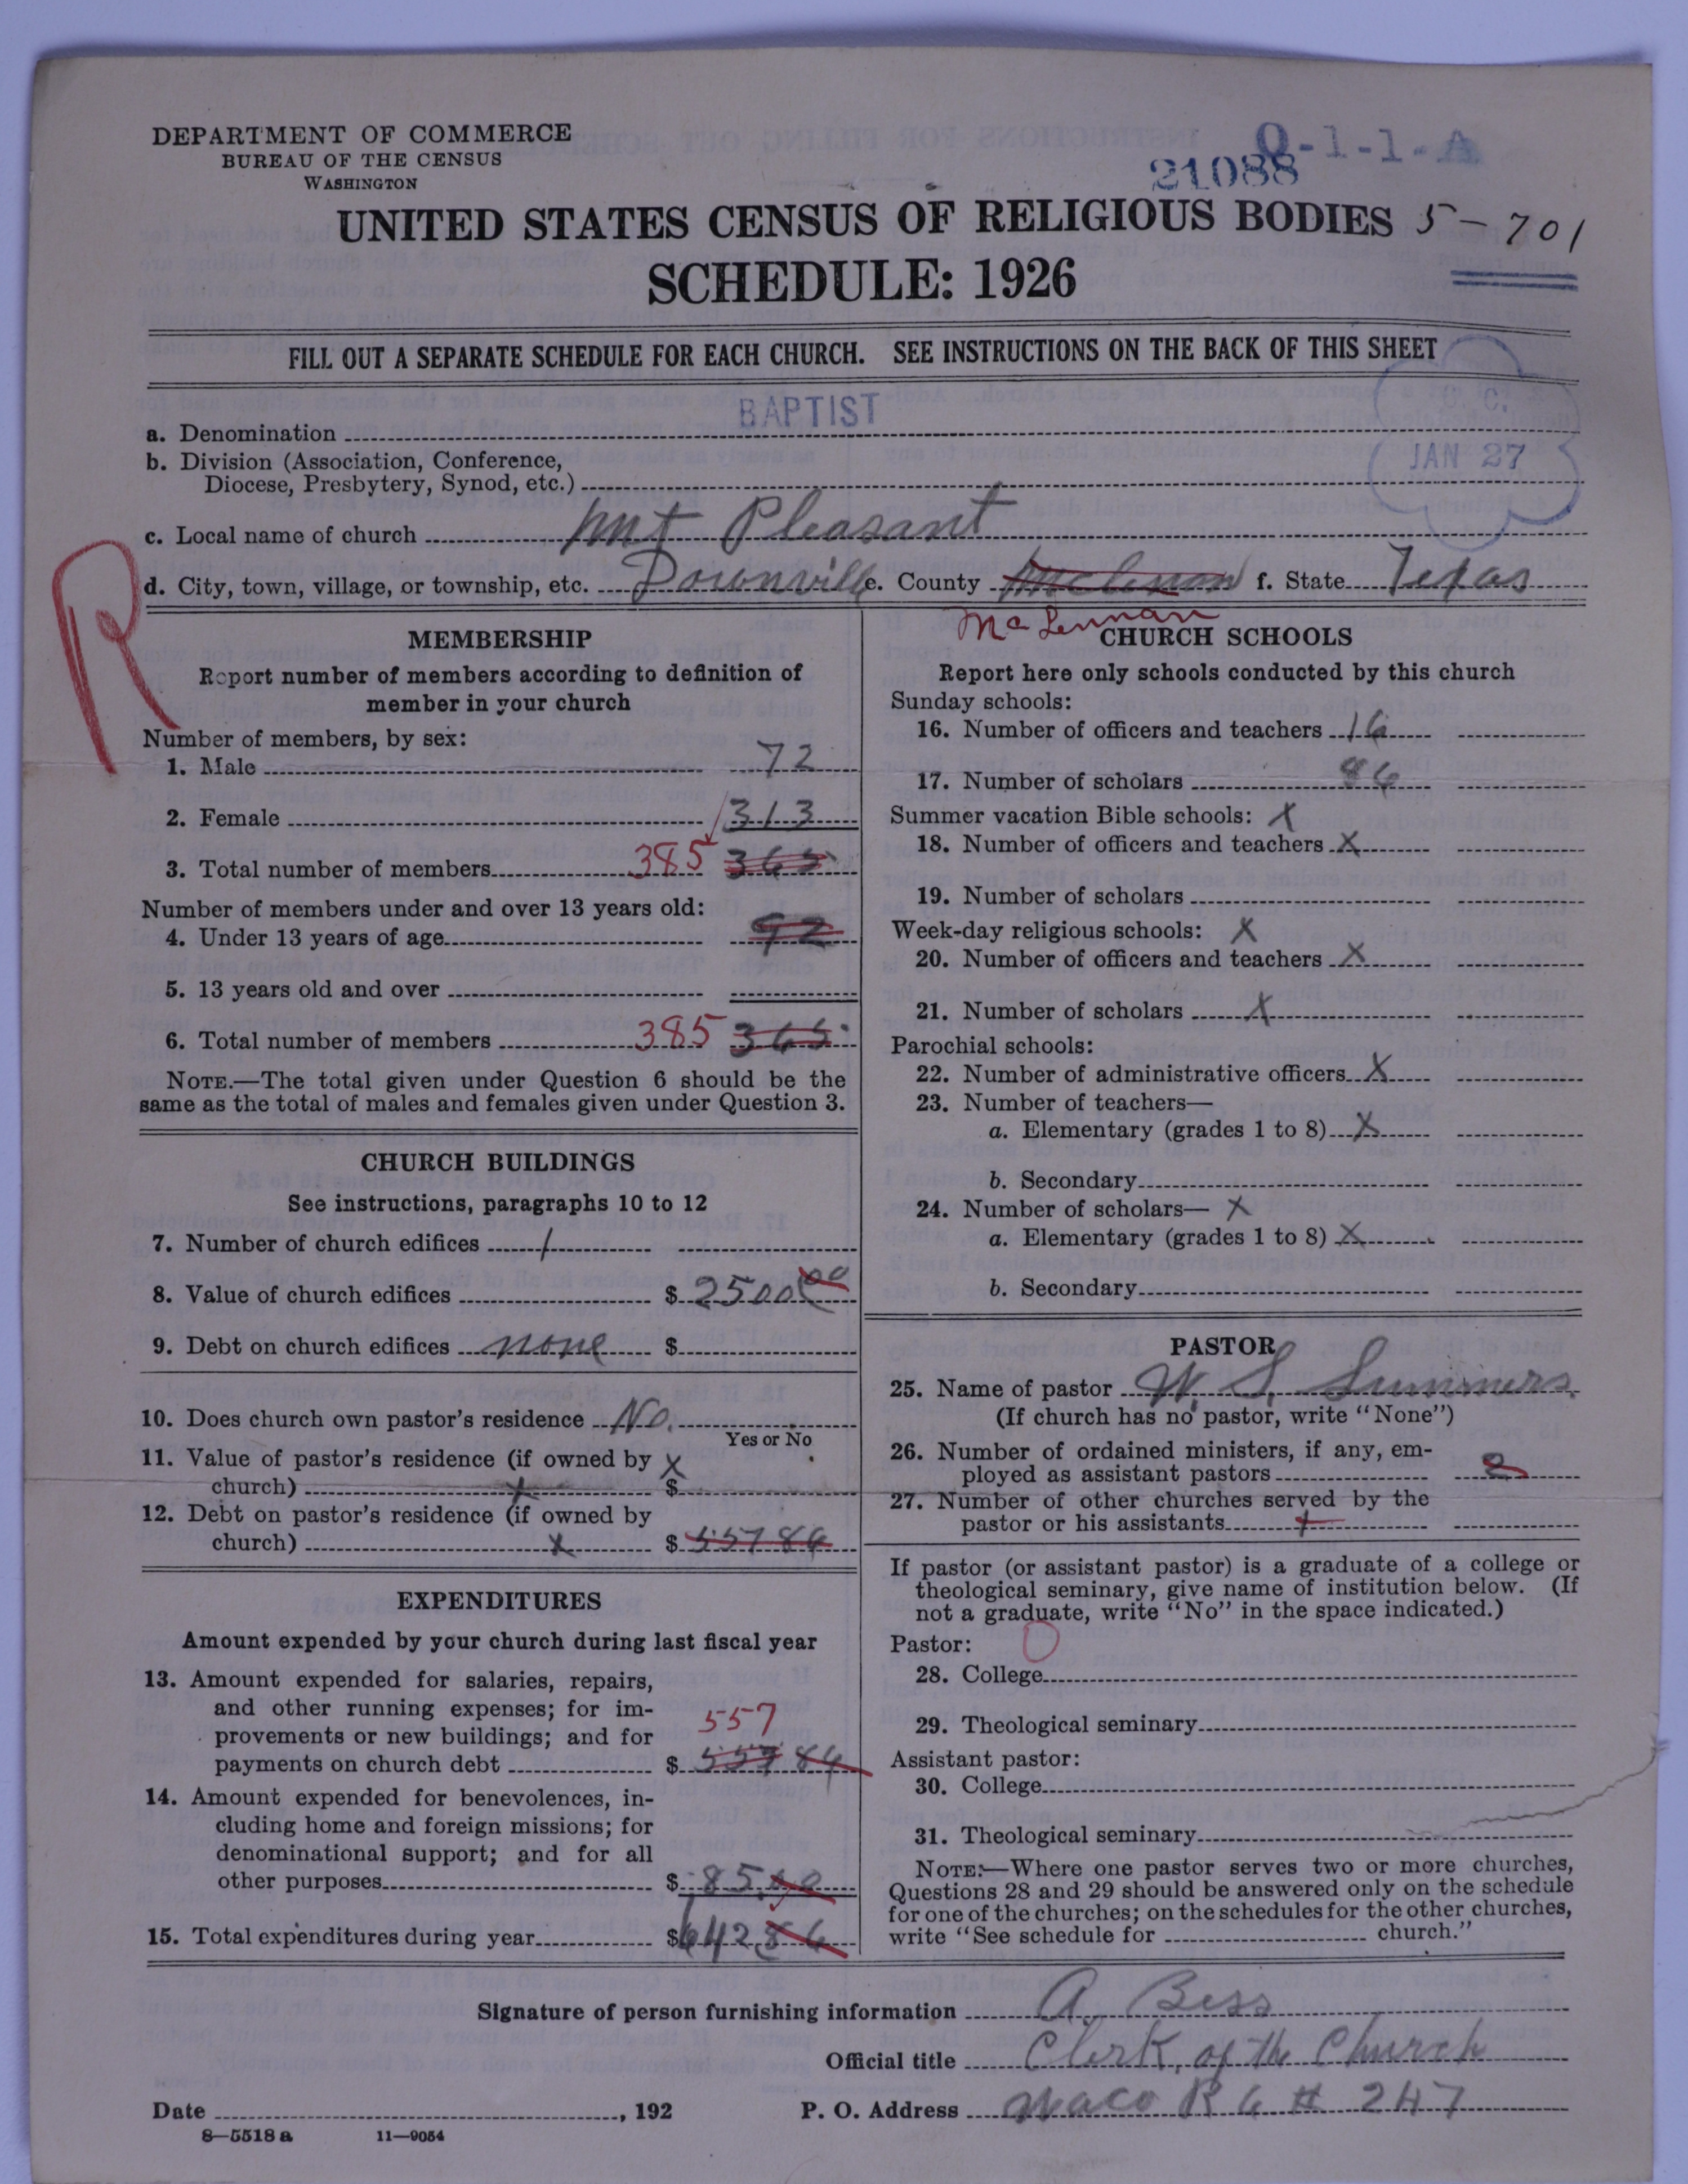 DEPARTMENT OF COMMERCE
BUREAU OF THE CENSUS
WASHINGTON
O-1-1-A
21088
UNITED STATES CENSUS OF RELIGIOUS BODIES 5-701
SCHEDULE: 1926
FILL OUT A SEPARATE SCHEDULE FOR EACH CHURCH. SEE INSTRUCTIONS ON THE BACK OF THIS SHEET
a. Denomination BAPTIST
b. Division (Association, Conference,
Diocese, Presbytery, Synod, etc.)
JAN 27
c. Local name of church Mt Pleasant
d. City, town, village, or township, etc. Downville e. County f. State Texas
R
McLennan
MEMBERSHIP
Report number of members according to definition of
member in your church
Number of members, by sex:
1. Male 72
2. Female 313
3. Total number of members 385 365
Number of members under and over 13 years old:
4. Under 13 years of age 92
5. 13 years old and over
6. Total number of members 385 365
NOTE.—The total given under Question 6 should be the
same as the total of males and females given under Question 3.
CHURCH BUILDINGS
See instructions, paragraphs 10 to 12
7. Number of church edifices 1
8. Value of church edifices $ 2500 00
9. Debt on church edifices none $
10. Does church own pastor's residence No.
Yes or No
11. Value of pastor's residence (if owned by X
church) x $
12. Debt on pastor's residence (if owned by
church) x $ 557 86
EXPENDITURES
Amount expended by your church during last fiscal year
13. Amount expended for salaries, repairs,
and other running expenses; for im-
provements or new buildings; and for 557
payments on church debt $ 557 86
14. Amount expended for benevolences, in-
cluding home and foreign missions; for
denominational support; and for all
other purposes $ 85.00
15. Total expenditures during year $ 642 86
CHURCH SCHOOLS
Report here only schools conducted by this church
Sunday schools:
16. Number of officers and teachers 16
17. Number of scholars 86
Summer vacation Bible schools: X
18. Number of officers and teachers X
19. Number of scholars
Week-day religious schools: X
20. Number of officers and teachers X
21. Number of scholars X
Parochial schools:
22. Number of administrative officers X
23. Number of teachers—
a. Elementary (grades 1 to 8) X
b. Secondary
24. Number of scholars— X
a. Elementary (grades 1 to 8) X
b. Secondary
PASTOR
25. Name of pastor W. S. Summers
(If church has no pastor, write "None")
26. Number of ordained ministers, if any, em-
ployed as assistant pastors 2
27. Number of other churches served by the
pastor or his assistants
If pastor (or assistant pastor) is a graduate of a college or
theological seminary, give name of institution below. (If
not a graduate, write "No" in the space indicated.)
Pastor: 0
28. College
29. Theological seminary
Assistant pastor:
30. College
31. Theological seminary
NOTE.—Where one pastor serves two or more churches,
Questions 28 and 29 should be answered only on the schedule
for one of the churches; on the schedules for the other churches,
write "See schedule for church."
Signature of person furnishing information A. Bess
Official title Clerk, of the Church
Date , 192 P. O. Address Waco R 6 # 247
8—5518 a 11—9054